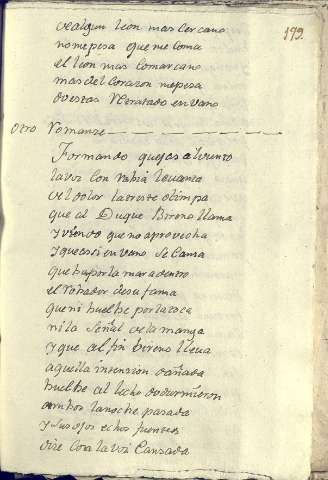 199.
ve algun leon mas cercano
no me pesa que me coma
el leon mas comarcano
mas del corazon me pesa
otro Romanze
Formando quejas al viento
la voz con rabia levanta
del dolor la triste olimpa
que al Duque Bireno llama
y viendo que no aprovecha
y que casi en vano se cansa
que ba por la mar adentro
el robador de su fama
que ni buelbe por la
ni la señal de la manga
y que al fin bireno lleva
aquella intension dañada
buelbe al lecho do durmieron
ambos la noche pasada
y sus ojos echos fuentes
dize con la voz cansada